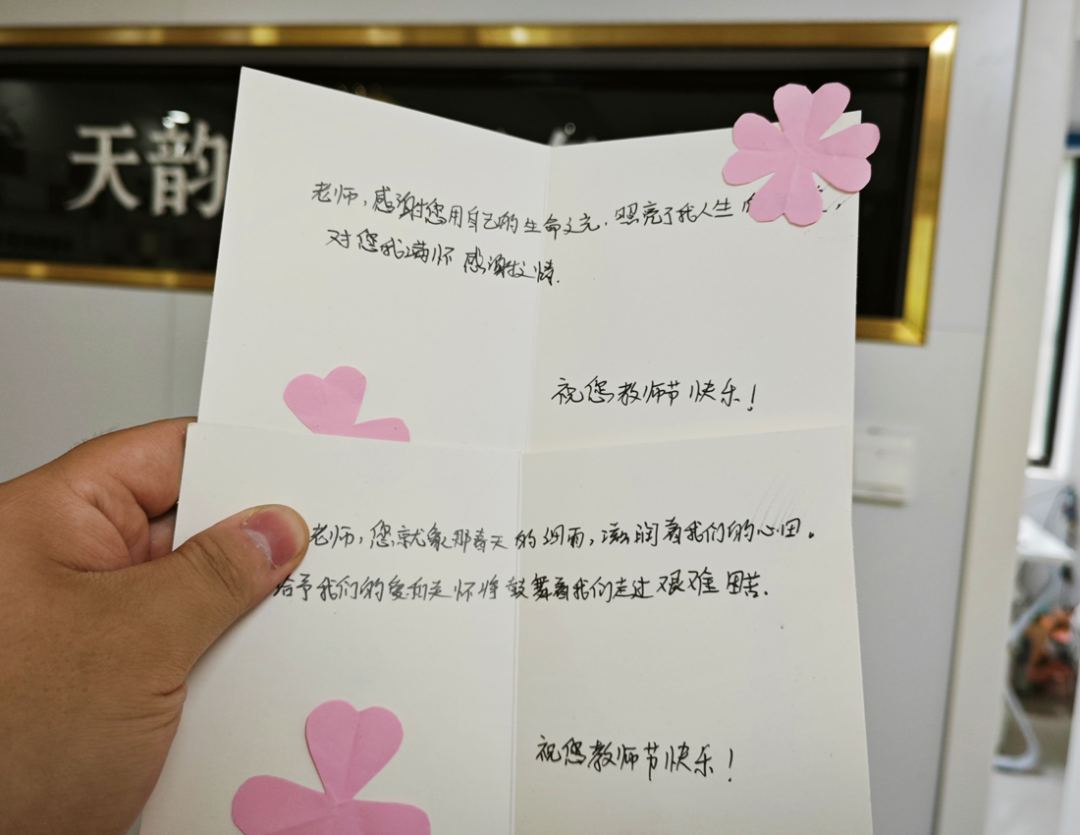 天韵
老师,感谢您用自己的生命之光,照亮了我人生
对您我满怀感谢之情.
祝您教师节快乐!
老师,您就象那春天的细雨,滋润着我们的心田。
给予我们的爱和关怀将鼓舞着我们走过艰难困苦.
祝您教师节快乐!